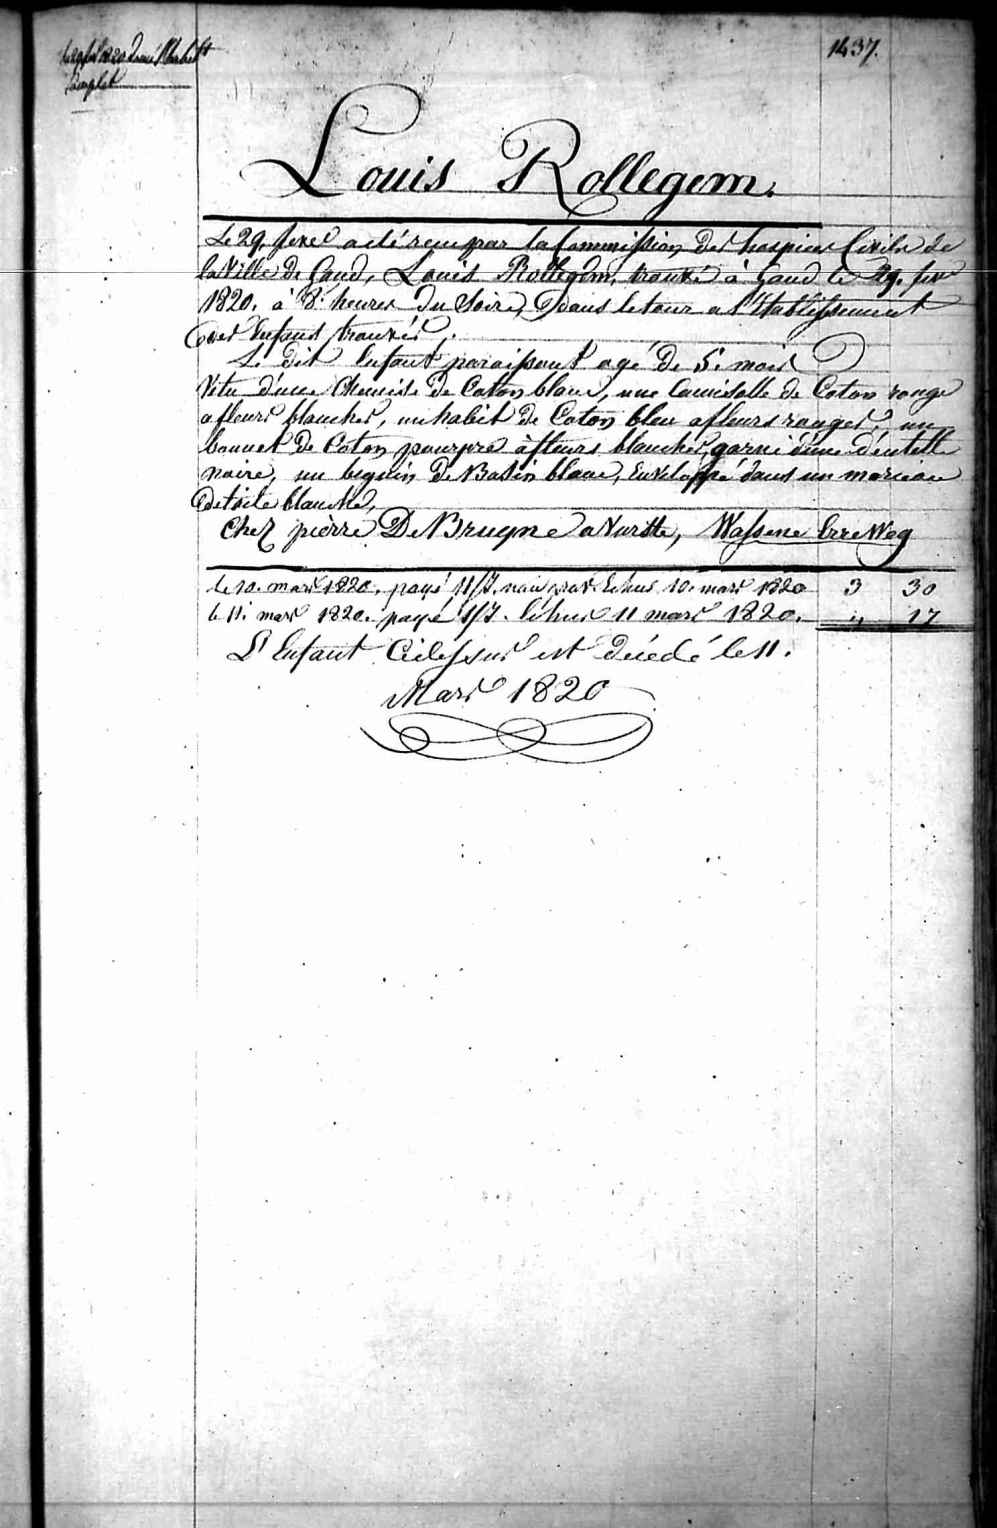 1437.
complet
Louis Rollegem.
Le 29. fevrr a été reçu par la Commission des hospices Civils de
la Ville de Gand, Louis Rollegem, trouvé à Gand le 29. fevr
1820. à 8. heures du Soire, dans le tour a l'Etablissement
des Enfans trouvés.
Le dit Enfant paraissant agé de 5. mois
Vetu d'une Chemise de Coton blanc, une Camisolle de Coton rouge
a fleurs blanches, un habit de Coton bleu a fleurs rouges, un
bonnet de Coton pourpre à fleurs blanches, garni d'une déntelle
noire, un beguin de Basin blanc, Enveloppé dans un morceau
de toile blanche,
Chez pièrre De Bruyne a Vurste,
Le 10. mars 1820. payé 11/J. Echus 10. mars 1820 3 30
le 11. mars 1820. payé 1/J. Echus 11 mars 1820. " 17
L'Enfant Cidessus est décedé le 11.
Mars 1820